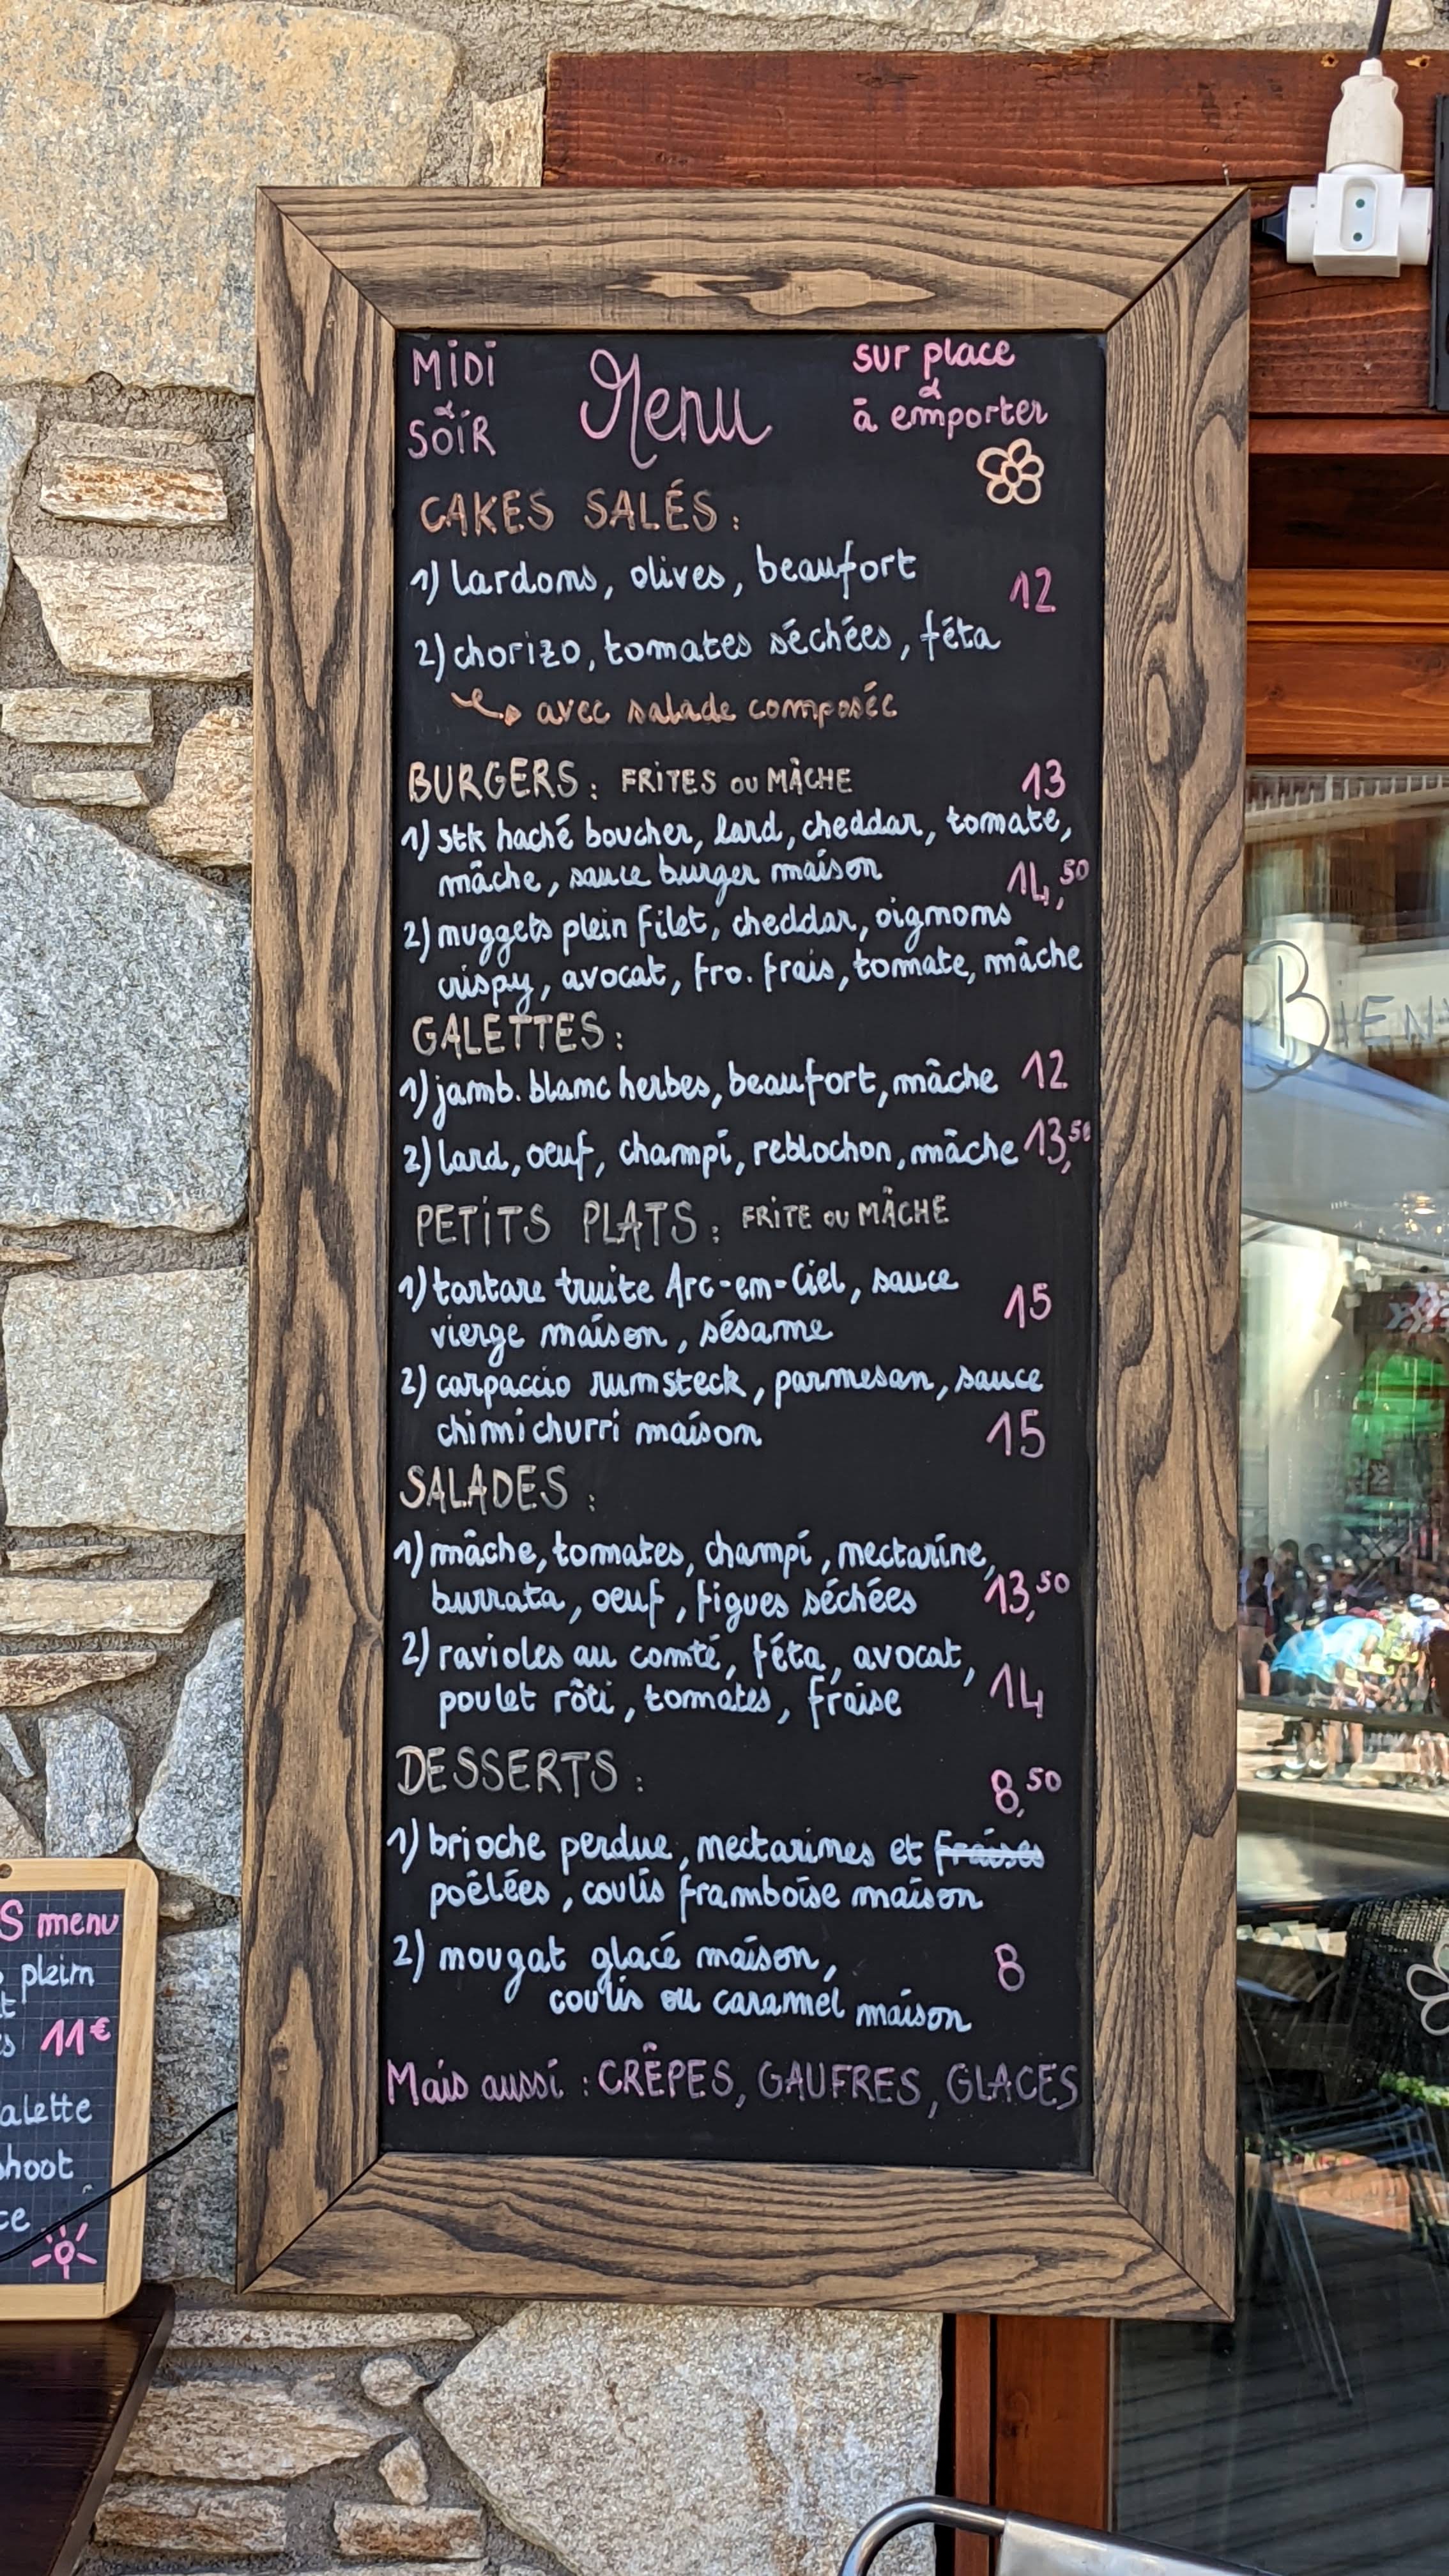 MIDI
&
SOIR
Menu
sur place
&
à emporter
CAKES SALÉS :
1) lardons, olives, beaufort
12
2) chorizo, tomates séchées, féta
avec salade composée
BURGERS : FRITES OU MÂCHE 13
1) stk haché boucher, lard, cheddar, tomate,
mâche, sauce burger maison
14,50
2) muggets plein filet, cheddar, oignons
crispy, avocat, fro. frais, tomate, mâche
GALETTES :
1) jamb. blanc herbes, beaufort, mâche 12
2) lard, oeuf, champi, reblochon, mâche 13,50
PETITS PLATS : FRITE OU MÂCHE
1) tartare truite Arc-en-Ciel, sauce
vierge maison, sésame
15
2) carpaccio rumsteck, parmesan, sauce
chimichurri maison 15
SALADES :
1) mâche, tomates, champi, nectarine,
burrata, oeuf, figues séchées 13,50
2) ravioles au comté, féta, avocat,
poulet rôti, tomates, fraise 14
DESSERTS : 8,50
1) brioche perdue, nectarines et fraises
poêlées, coulis framboise maison
2) nougat glacé maison, 8
coulis ou caramel maison
Mais aussi : CRÊPES, GAUFRES, GLACES
S menu
plein
11€
alette
hoot
ce
BIEN